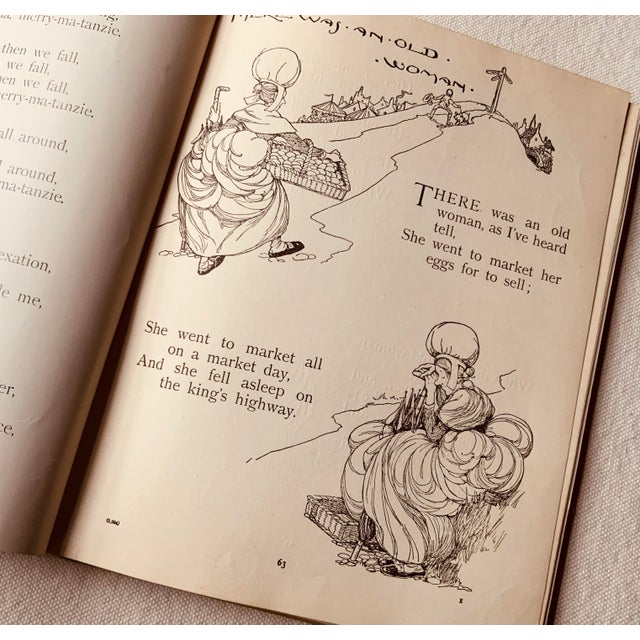 merry-ma-tanzie.
then we fall,
we fall,
then we fall,
merry-ma-tanzie.
all around,
around,
ma-tanzie.
me,
THERE · WAS · AN · OLD ·
· WOMAN ·
THERE was an old
woman, as I've heard
tell,
She went to market her
eggs for to sell;
She went to market all
on a market day,
And she fell asleep on
the king's highway.
63
E